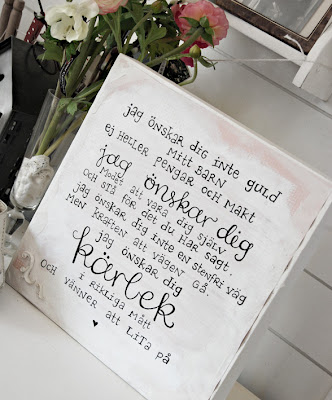 jag önskar dig inte guld
mitt barn
ej heller pengar och makt
jag önskar dig
modet att vara dig själv,
och stå för det du har sagt.
jag önskar dig inte en stenfri väg
men kraften att vägen gå.
jag önskar dig
kärlek
i rikliga mått
och vänner att lita på